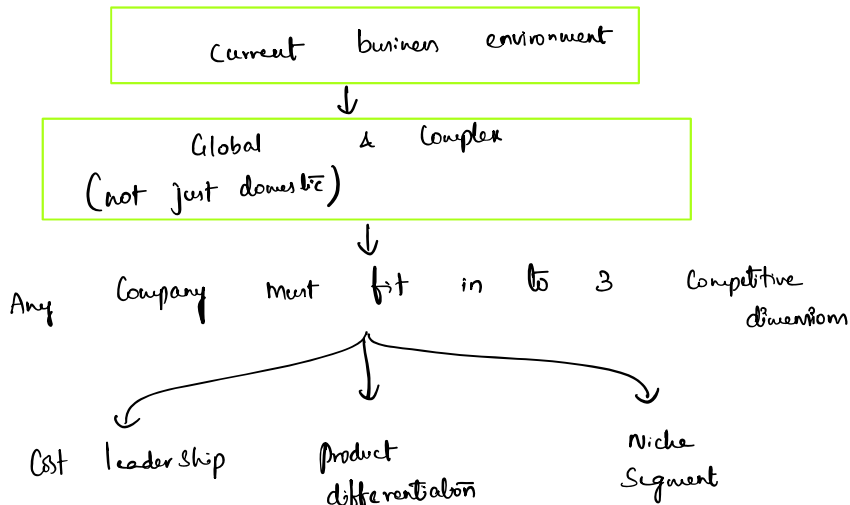 Current business environment
Global & Complex
(not just domestic)
Any Company must fit in to 3 Competitive
dimensions
Cost leadership Product Niche
differentiation Segment